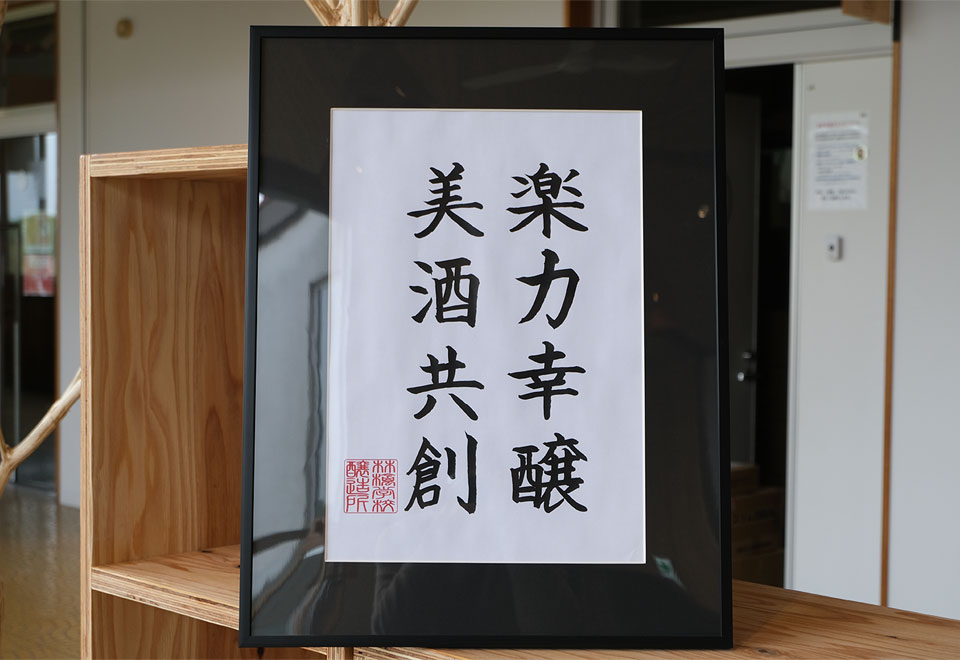 楽力幸醸
美酒共創
林檎学校
醸造所